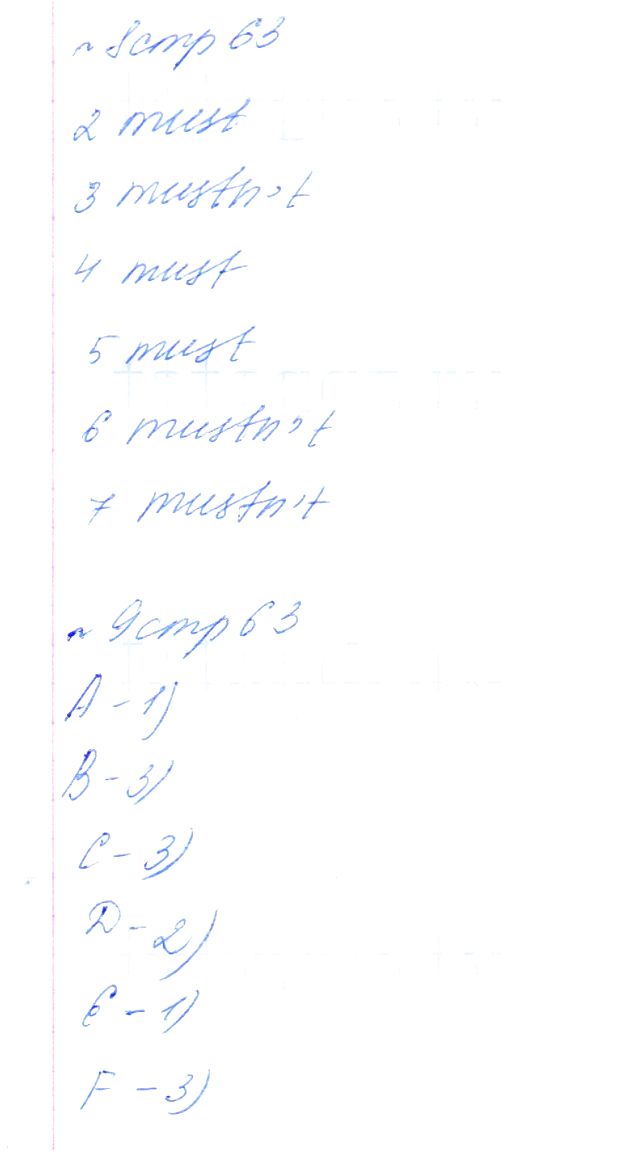 № 8 стр 63
2 must
3 mustn't
4 must
5 must
6 mustn't
7 mustn't
№ 9 стр 63
A - 1)
B - 3)
C - 3)
D - 2)
E - 1)
F - 3)